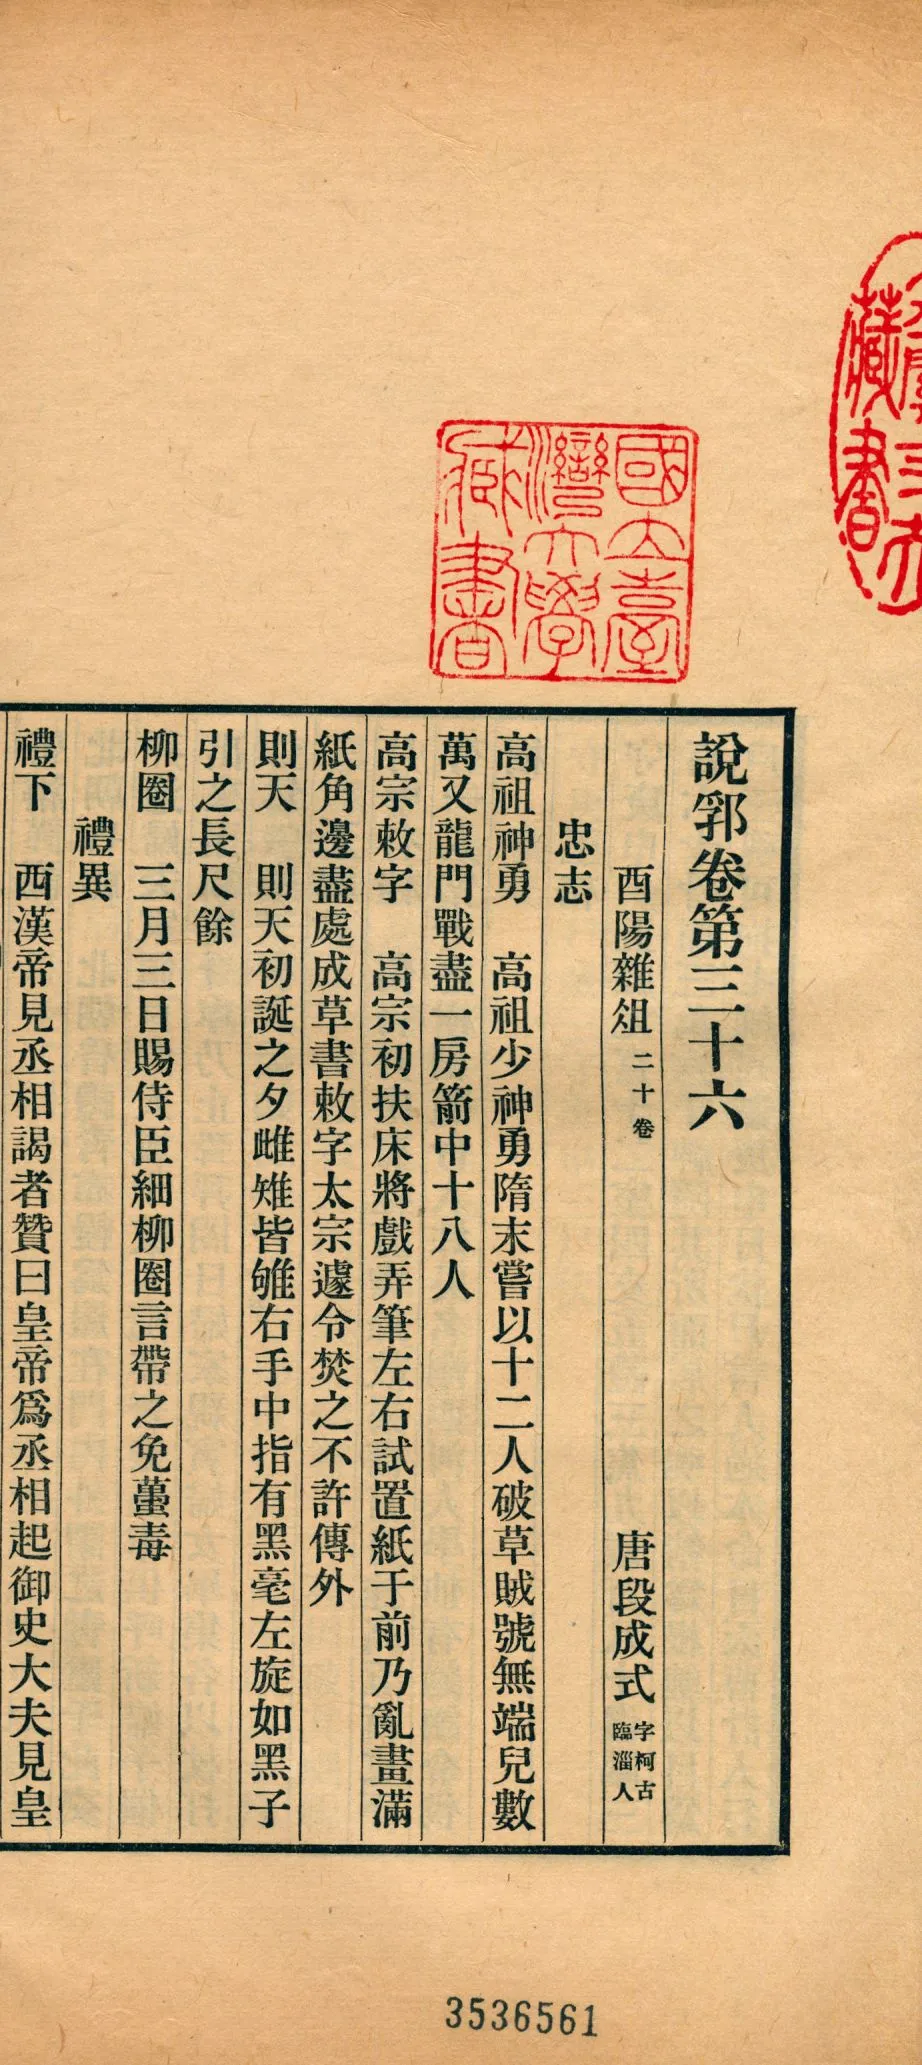 說郛卷第三十六
酉陽雜俎 二十卷 唐段成式 字柯古 臨淄人
忠志
高祖神勇 高祖少神勇隋末嘗以十二人破草賊號無端兒數
萬又龍門戰盡一房箭中十八人
高宗敕字 高宗初扶床將戲弄筆左右試置紙于前乃亂畫滿
紙角邊盡處成草書敕字太宗遽令焚之不許傳外
則天 則天初誕之夕雌雉皆雊右手中指有黑毫左旋如黑子
引之長尺餘
柳圈 三月三日賜侍臣細柳圈言帶之免蠆毒
禮異
禮下 西漢帝見丞相謁者贊曰皇帝爲丞相起御史大夫見皇
國立臺
灣大學
藏書
藏書
3536561